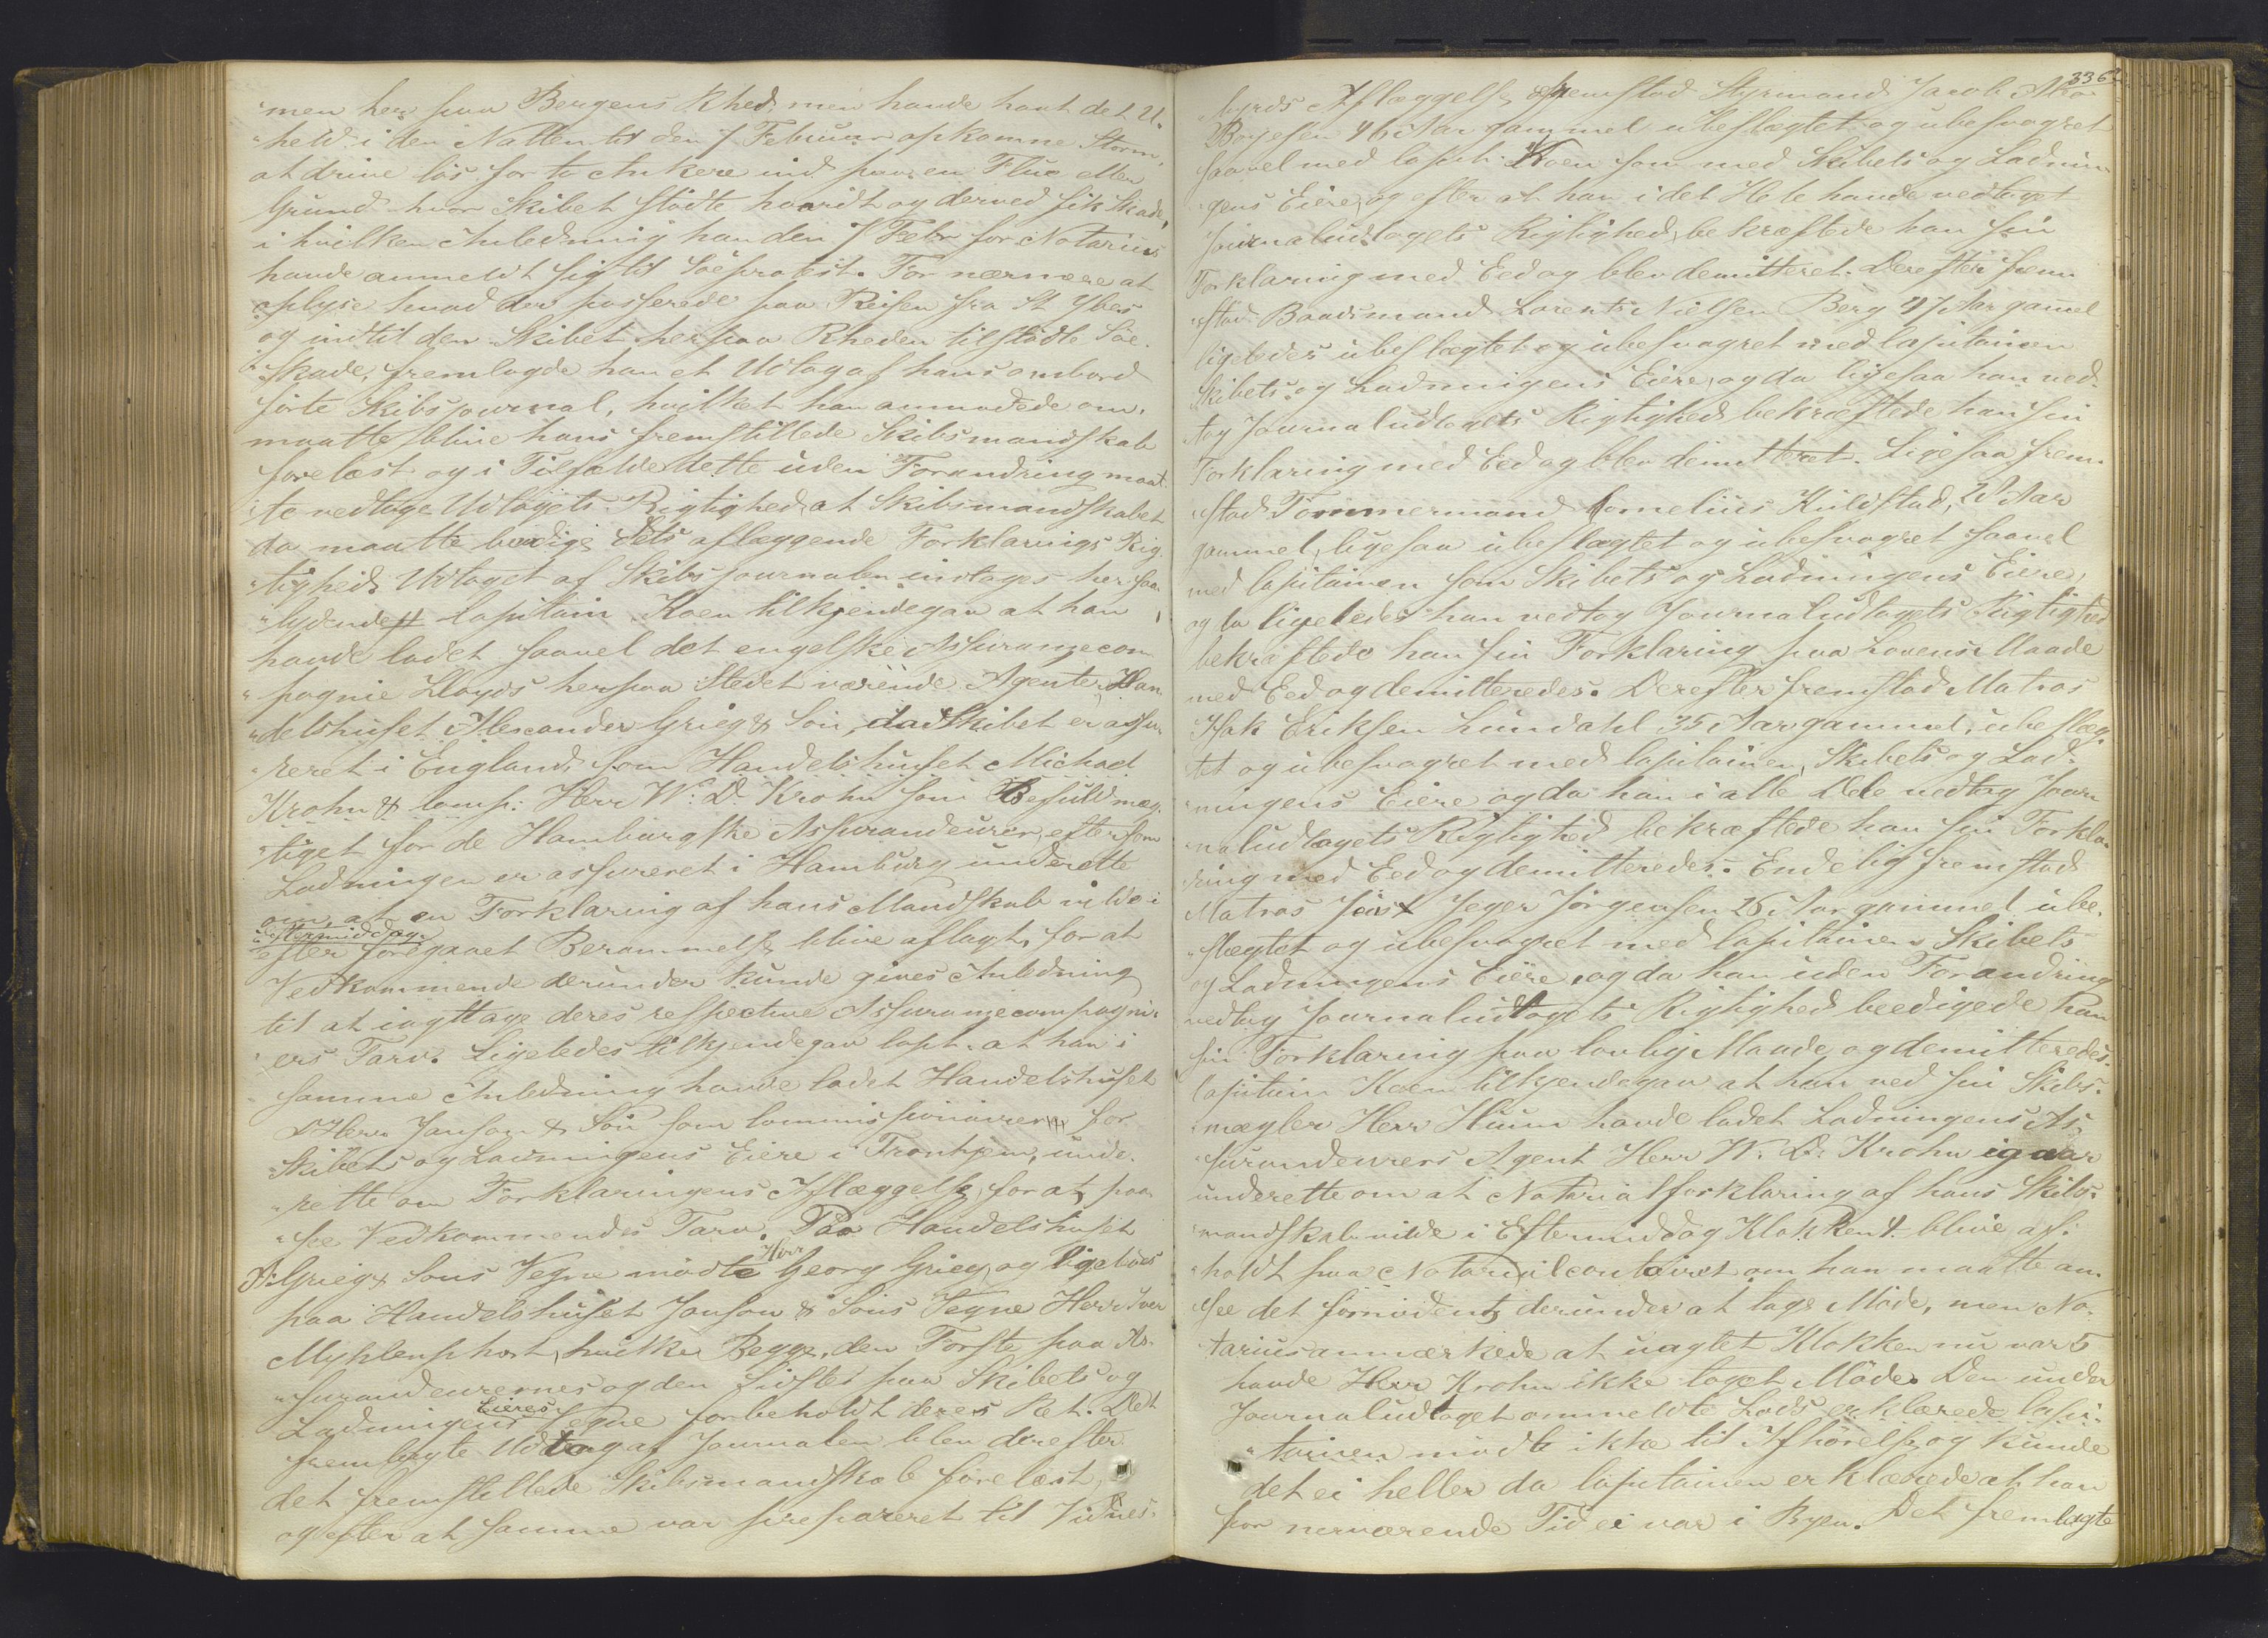 "men her paa Bergens Rhed men havde havt det U-
"held i den Natten til den 7 Februar opkomne Storm,
at drive løs for to Ankere ind paa en Flue eller
Grund hvor Skibet stødte haardt og derved fik Skade,
i hvilken Anledning han den 7 Febr for Notarius
havde anmeldt sig til Søeprotest. For nærmere at
oplyse hvad der passerede paa Reisen fra St Ybes
og indtil den Skibet her paa Rheden tilstødte Søe-
"skade, fremlagde han et Udtog af hans ombord
førte Skibsjournal, hvilket han anmodede om,
maatte blive hans fremstillede Skibsmandskab
forelæst og i Tilfælde dette uden Forandring maat-
"te vedtage Udtogets Rigtighed, at Skibsmandskabet
da maatte beedige dets aflæggende Forklarings Rig-
"tighed. Udtoget af Skibsjournalen indtages her saa-
"lydende # Capitain Koen tilkjendegav at han
havde ladet saavel det engelske Assurancecom-
"pagnie Lloyds herpaa Stedet værende Agente, Han-
"delshuset Alexander Grieg & Søn, da Skibet er assu-
"reret i England, som Handelshuset Michael
Krohn & Comp: Herr W. D. Krohn som Befuldmæg-
"tiget for de Hamburgske Assurandeurer, eftersom
Ladningen er assureret i Hamburg underrette
om, at en Forklaring af hans Mandskab vilde i
Eftermiddag
efter foregaaet Berammelse blive aflagt, for at
Vedkommende derunder kunde gives Anledning
til at iagttage deres respective Assurancecompagni-
"ers Tarv. Ligeledes tilkjendegav Capt. at han i
samme Anledning havde ladet Handelshuset
D'Herrer Janson & Søn som Commissionairer for
Skibets og Ladningens Eiere i Tronhjem, unde-
"rette om Forklaringens Aflæggelse, for at paa-
"see Vedkommendes Tarv. Paa Handelshuset
A: Grieg & Søns Vegne mødte Herr Georg Grieg, og ligeledes
paa Handelshuset Janson & Søns Vegne Herr Iver
Myhlenphort, hvilke Begge, den Første paa As-
"surandeurernes og den sidste paa Skibets og
Ladningens Eieres Vegne forbeholdt deres Ret. Det
fremlagte Udtog af Journalen blev derefter
det fremstillede Skibsmandskab forelæst,
og efter at samme var præpareret til Vidnes-
336
byrds Aflæggelse, fremstod Styrmand Jacob
Børgesen 46 Aar gammel ubeslægtet og ubesvogret
saavel med Capit. Koen som med Skibets og Ladnin-
"gens Eiere, og efter at han i det Hele havde vedtaget
Journaludtogets Rigtighed, bekræftede han sin
Forklaring med Eed og blev demitteret. Derefter frem-
"stod Baadsmand Lorents Nielsen Berg 47 Aar gammel
ligeledes ubeslægtet og ubesvogret med Capitainen
Skibets og Ladningens Eiere, og da ligesaa han ved-
tog Journaludtogets Rigtighed bekræftede han sin
Forklaring med Eed og blev demitteret. Ligesaa frem-
"stod Tømmermand Cornelius Kuldstad, 28 Aar
gammel, ligesaa ubeslægtet og ubesvogret saavel
med Capitainen som Skibets og Ladningens Eiere,
og da ligeledes han vedtog Journaludtogets Rigtighed
bekræftede han sin Forklaring paa Lovens Maade
med Eed og demitteredes. Derefter fremstod Matros
Isak Eriksen Lundahl 35 Aar gammel, ubeslæg-
tet og ubesvogret med Capitainen, Skibets og Lad-
"ningens Eiere og da han i alle Dele vedtog Jour-
"naludtogets Rigtighed bekræftede han sin Forkla-
"ring med Eed og demitteredes. Endelig fremstod
Matros Jens Jeger Jørgensen 26 Aar gammel ube-
"slægtet og ubesvogret med Capitainen Skibets
og Ladningens Eiere, og da han uden Forandring
vedtog Journaludtogets Rigtighed beedigede han
sin Forklaring paa lovlig Maade, og demitteredes.
Capitain Koen tilkjendegav at han ved sin Skibs-
"mægler Herr Huun havde ladet Ladningens As-
"surandeurers Agent Herr W. D. Krohn igaar
underrette om at Notarialforklaring af hans Skibs-
"mandskab vilde i Eftermiddag Klokken 4 blive af-
"holdt paa Notarialcontoiret om han maatte an-
see det fornødent, derunder at tage Møde, men No-
"tarius anmærkede at uagtet Klokken nu var 5
havde Herr Krohn ikke taget Møde. Den under
Journaludtoget ommeldte Lods erklærede Capi-
"tainen mødte ikke til Afhørelse, og kunde
det ei heller da Capitainen erklærede at han
for nærværende Tid ei var i Byen. Det fremlagte